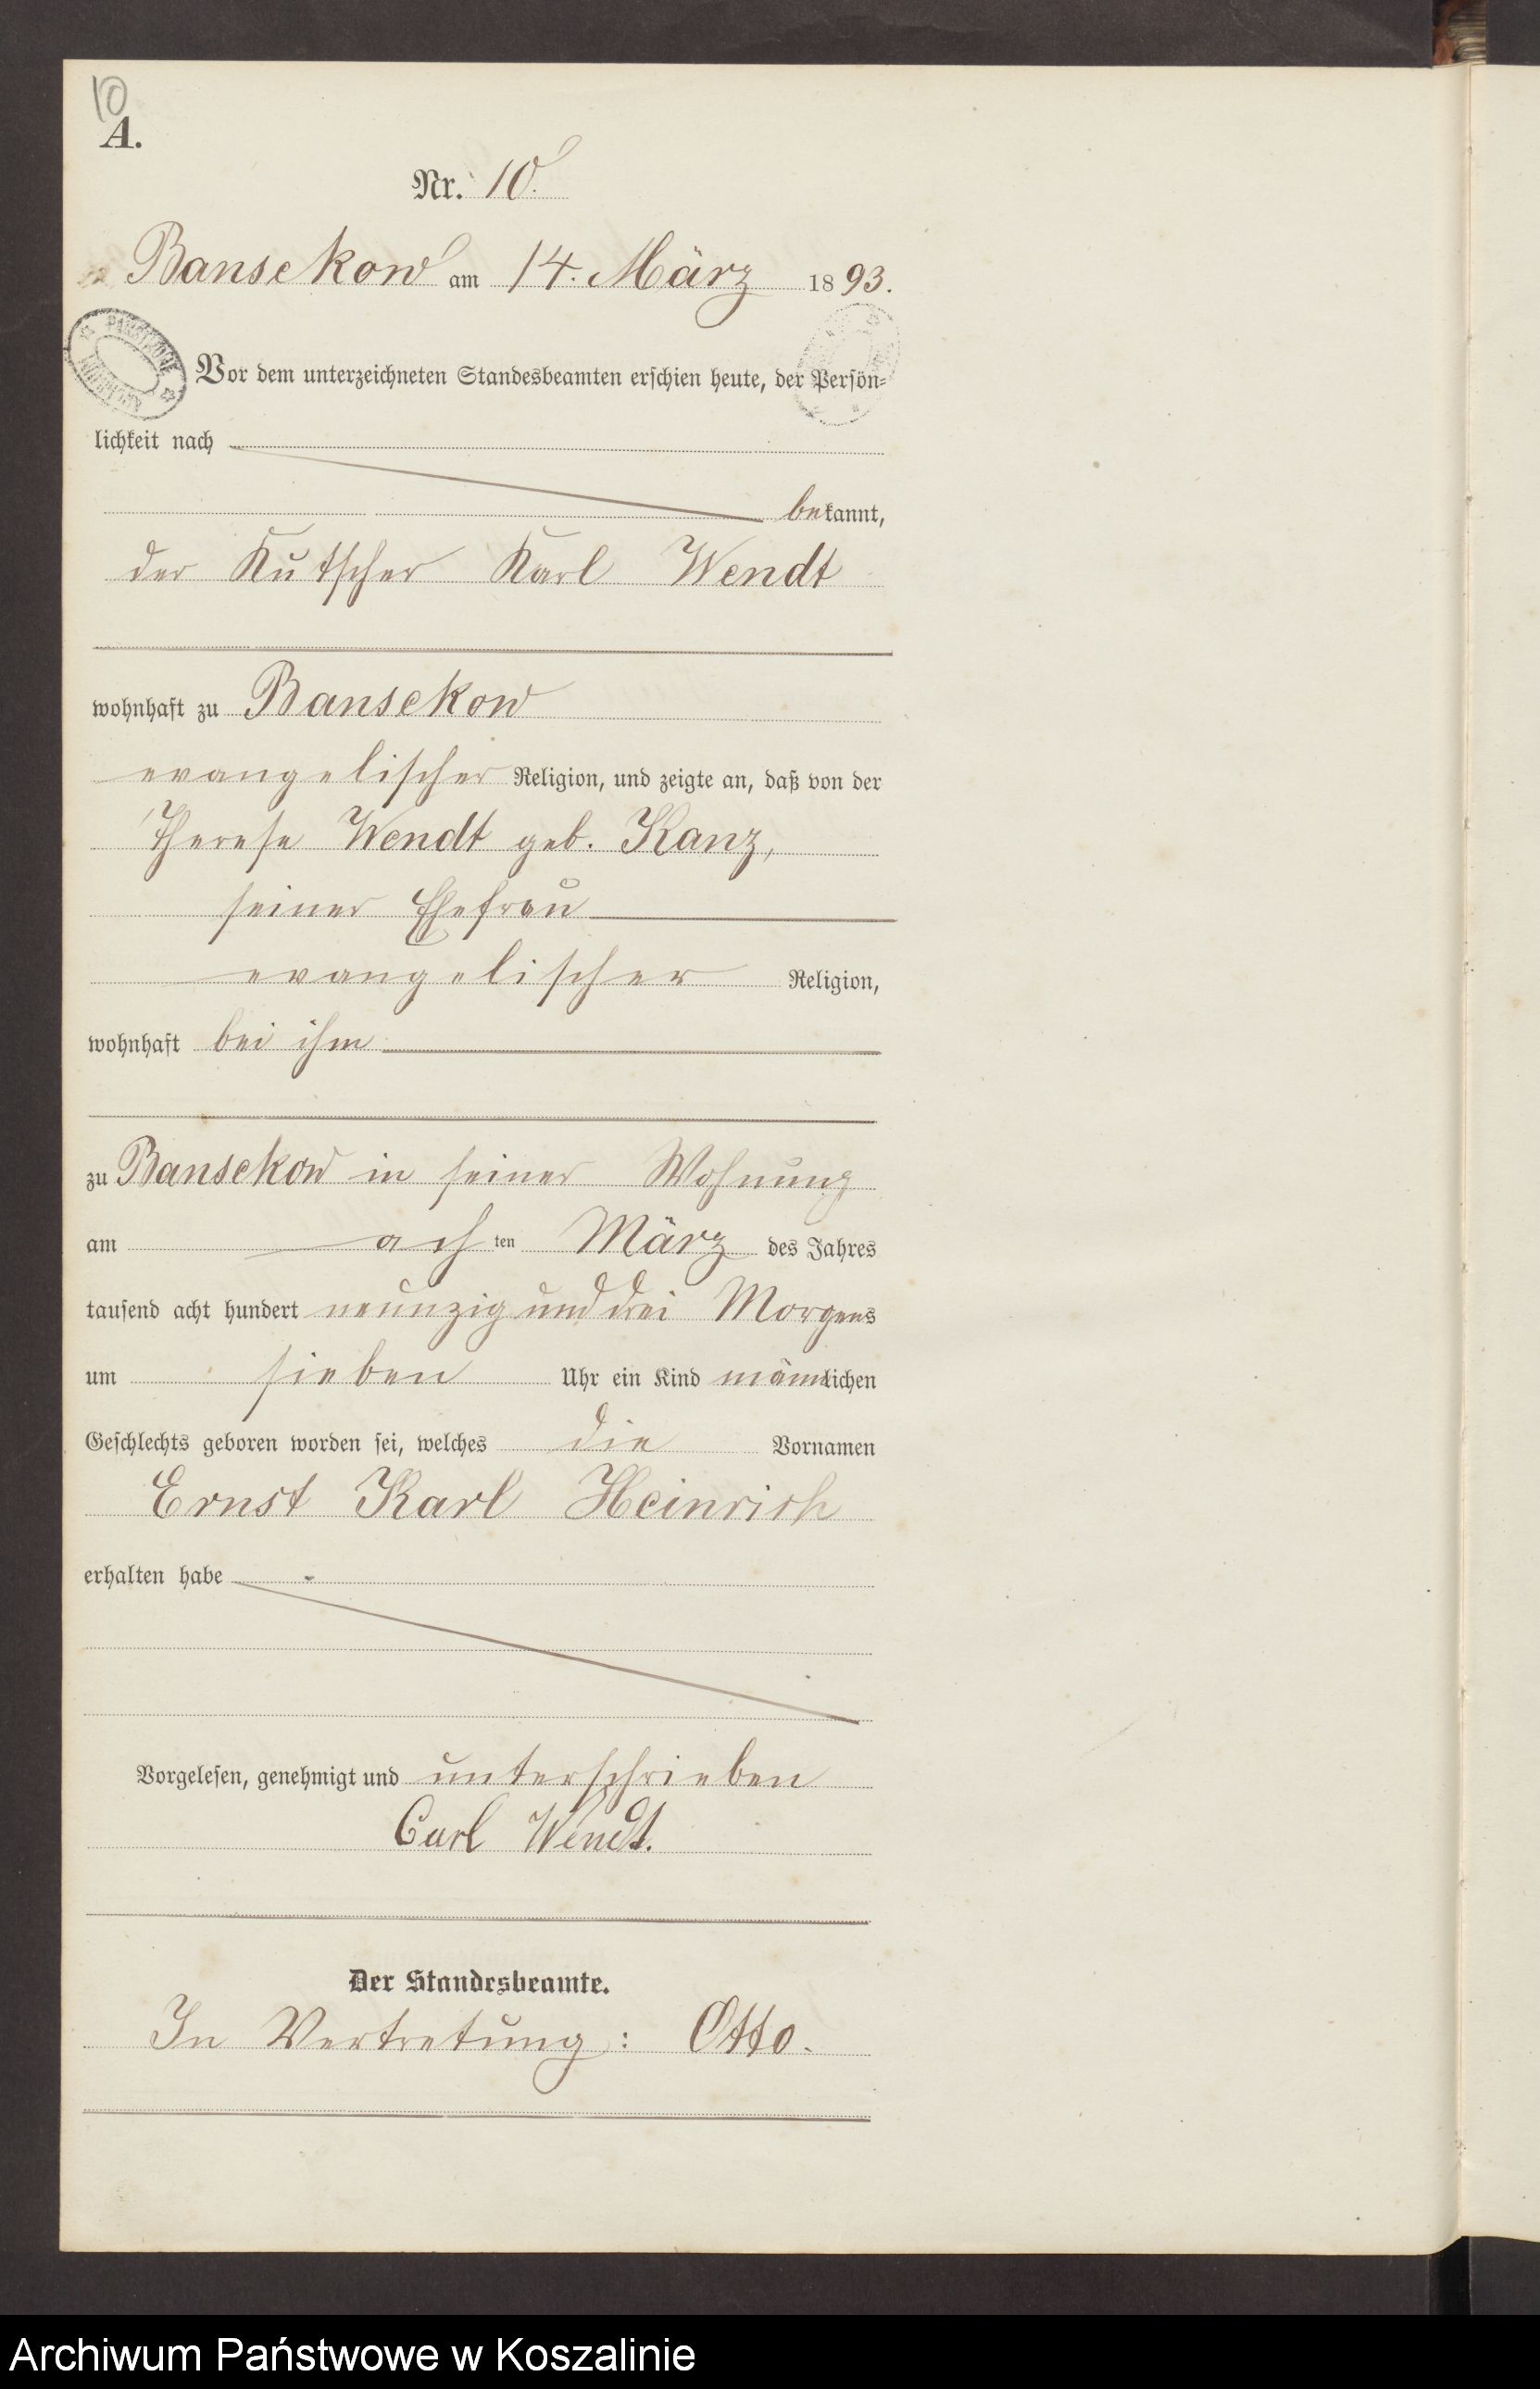 10
A.
Nr. 10.
Bansekow am 14. März 1893.
Vor dem unterzeichneten Standesbeamten erschien heute, der Persön-
lichkeit nach
bekannt,
der Kutscher Karl Wendt
wohnhaft zu Bansekow
evangelischer Religion, und zeigte an, daß von der
Therese Wendt geb. Kanz,
seiner Ehefrau
evangelischer Religion,
wohnhaft bei ihm
zu Bansekow in seiner Wohnung
am achten März des Jahres
tausend acht hundert neunzig und drei Morgens
um sieben Uhr ein Kind männlichen
Geschlechts geboren worden sei, welches die Vornamen
Ernst Karl Heinrich
erhalten habe
Vorgelesen, genehmigt und unterschrieben
Carl Wendt.
Der Standesbeamte.
In Vertretung: Otto.
Archiwum Państwowe w Koszalinie